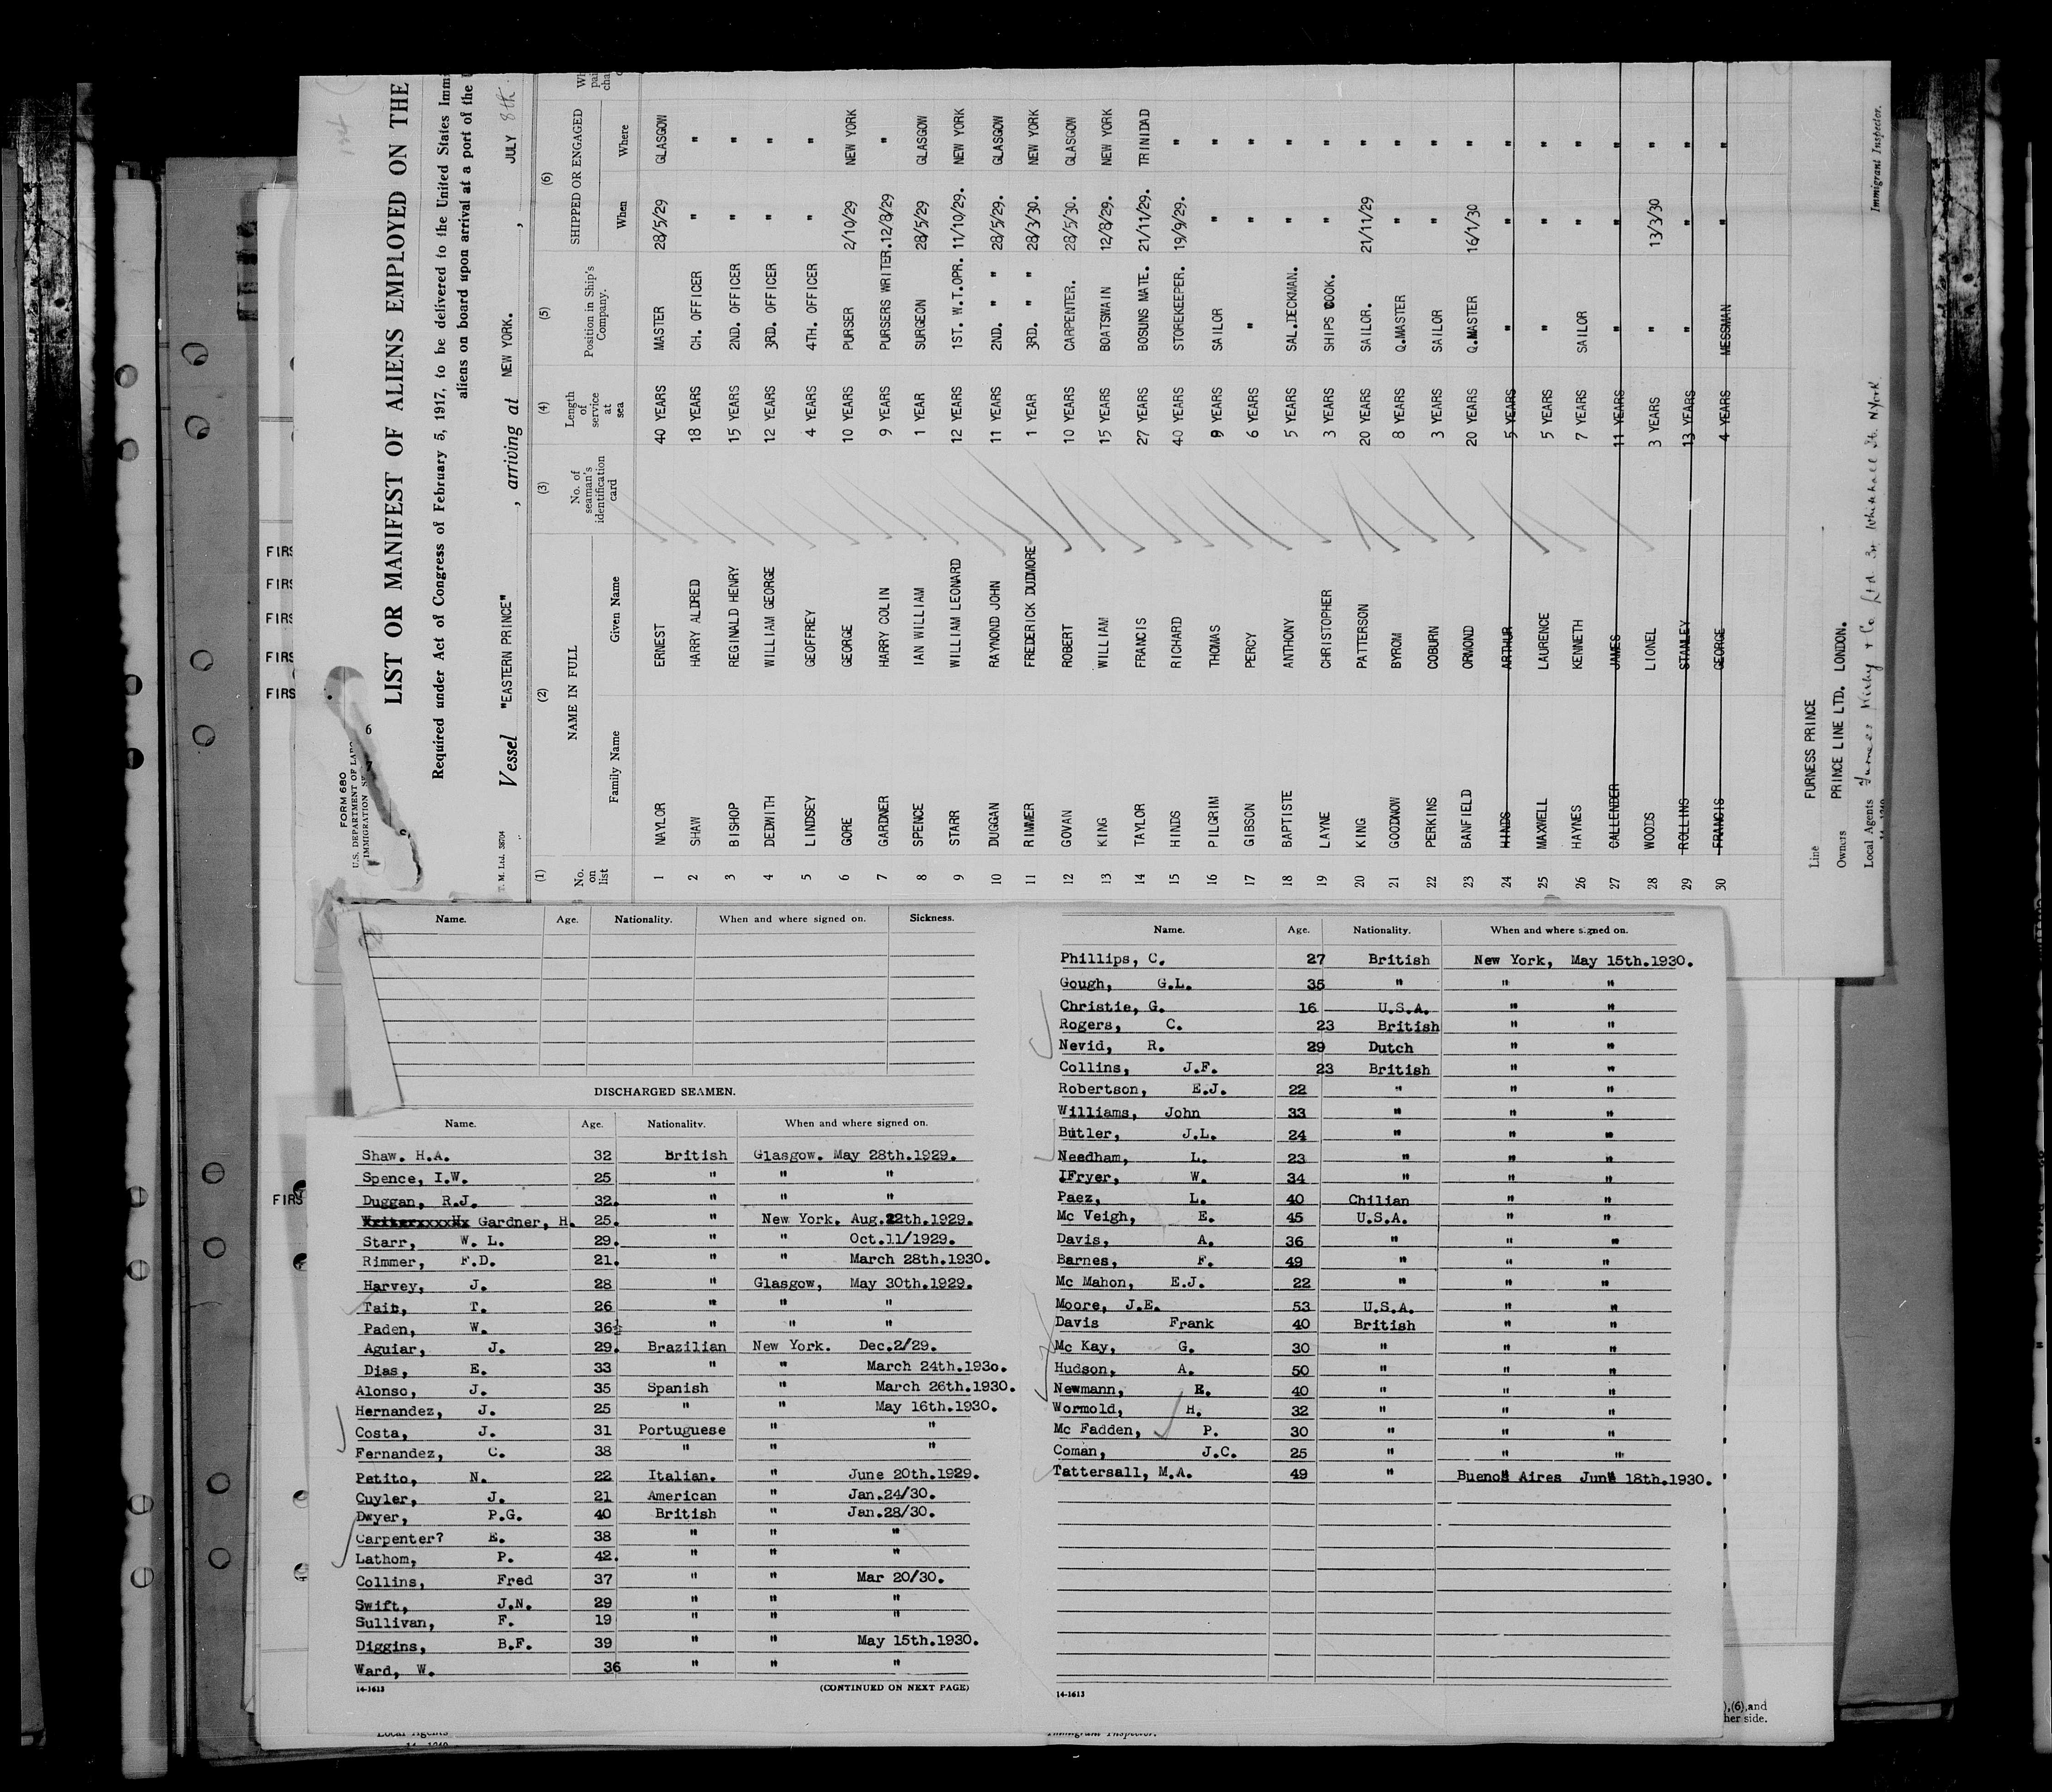 FORM 680
U.S. DEPARTMENT OF
IMMIGRATION
6
LIST OR MANIFEST OF ALIENS EMPLOYED ON THE
Required under Act of Congress of February 5, 1917, to be delivered to the United States
aliens on board upon arrival at a port of the
T. M. Ltd. 38704 Vessel "EASTERN PRINCE" , arriving at NEW YORK. , JULY 8th.
(1) (2) (3) (4) (5) (6)
No. on list NAME IN FULL No. of seaman's identification card Length of service at sea Position in Ship's Company. SHIPPED OR ENGAGED
Family Name Given Name When Where
1 NAYLOR ERNEST 40 YEARS MASTER 28/5/29 GLASGOW
2 SHAW HARRY ALDRED 18 YEARS CH. OFFICER " "
3 BISHOP REGINALD HENRY 15 YEARS 2ND. OFFICER " "
4 DEDWITH WILLIAM GEORGE 12 YEARS 3RD. OFFICER " "
5 LINDSEY GEOFFREY 4 YEARS 4TH. OFFICER " "
6 GORE GEORGE 10 YEARS PURSER 2/10/29 NEW YORK
7 GARDNER HARRY COLIN 9 YEARS PURSERS WRITER. 12/8/29 "
8 SPENCE IAN WILLIAM 1 YEAR SURGEON 28/5/29 GLASGOW
9 STARR WILLIAM LEONARD 12 YEARS 1ST. W.T.OPR. 11/10/29. NEW YORK
10 DUGGAN RAYMOND JOHN 11 YEARS 2ND. " " 28/5/29. GLASGOW
11 RIMMER FREDERICK DUDMORE 1 YEAR 3RD. " " 28/3/30. NEW YORK
12 GOVAN ROBERT 10 YEARS CARPENTER. 28/5/30. GLASGOW
13 KING WILLIAM 15 YEARS BOATSWAIN 12/8/29. NEW YORK
14 TAYLOR FRANCIS 27 YEARS BOSUNS MATE. 21/11/29. TRINIDAD
15 HINDS RICHARD 40 YEARS STOREKEEPER. 19/9/29. "
16 PILGRIM THOMAS 9 YEARS SAILOR " "
17 GIBSON PERCY 6 YEARS " " "
18 BAPTISTE ANTHONY 5 YEARS SAL.DECKMAN. " "
19 LAYNE CHRISTOPHER 3 YEARS SHIPS COOK. " "
20 KING PATTERSON 20 YEARS SAILOR. 21/11/29 "
21 GOODNOW BYROM 8 YEARS Q.MASTER " "
22 PERKINS COBURN 3 YEARS SAILOR " "
23 BANFIELD ORMOND 20 YEARS Q.MASTER 16/1/30 "
24 HINDS ARTHUR 5 YEARS " " "
25 MAXWELL LAURENCE 5 YEARS " " "
26 HAYNES KENNETH 7 YEARS SAILOR " "
27 CALLENDER JAMES 11 YEARS " " "
28 WOODS LIONEL 3 YEARS " 13/3/30 "
29 ROLLINS STANLEY 13 YEARS " " "
30 FRANCIS GEORGE 4 YEARS MESSMAN " "
Line FURNESS PRINCE
Owners PRINCE LINE LTD. LONDON.
Local Agents Furness Withy & Co Ltd. 34 Whitehall St. N.York. Immigrant Inspector.
FIRS
FIRS
FIRS
FIRS
FIRS
FIRS
Name. Age. Nationality. When and where signed on. Sickness.
DISCHARGED SEAMEN.
Name. Age. Nationality. When and where signed on.
Shaw. H.A. 32 British Glasgow. May 28th.1929.
Spence, I.W. 25 " " "
Duggan, R.J. 32. " " "
Gardner, H. 25. " New York. Aug.22th.1929.
Starr, W. L. 29. " " Oct.11/1929.
Rimmer, F.D. 21. " " March 28th.1930.
Harvey, J. 28 " Glasgow, May 30th.1929.
Tait, T. 26 " " "
Paden, W. 36½ " " "
Aguiar, J. 29. Brazilian New York. Dec.2/29.
Dias, E. 33 " " March 24th.1930.
Alonso, J. 35 Spanish " March 26th.1930.
Hernandez, J. 25 " " May 16th.1930.
Costa, J. 31 Portuguese " "
Fernandez, C. 38 " " "
Petito, N. 22 Italian. " June 20th.1929.
Cuyler, J. 21 American " Jan.24/30.
Dwyer, P.G. 40 British " Jan.28/30.
Carpenter? E. 38 " " "
Lathom, P. 42. " " "
Collins, Fred 37 " " Mar 20/30.
Swift, J.N. 29 " " "
Sullivan, F. 19 " " "
Diggins, B.F. 39 " " May 15th.1930.
Ward, W. 36 " " "
14-1613 (CONTINUED ON NEXT PAGE)
Name. Age. Nationality. When and where signed on.
Phillips, C. 27 British New York, May 15th.1930.
Gough, G.L. 35 " " "
Christie, G. 16 U.S.A. " "
Rogers, C. 23 British " "
Nevid, R. 29 Dutch " "
Collins, J.F. 23 British " "
Robertson, E.J. 22 " " "
Williams, John 33 " " "
Butler, J.L. 24 " " "
Needham, L. 23 " " "
IFryer, W. 34 " " "
Paez, L. 40 Chilian " "
Mc Veigh, E. 45 U.S.A. " "
Davis, A. 36 " " "
Barnes, F. 49 " " "
Mc Mahon, E.J. 22 " " "
Moore, J.E. 53 U.S.A. " "
Davis Frank 40 British " "
Mc Kay, G. 30 " " "
Hudson, A. 50 " " "
Newmann, R. 40 " " "
Wormold, H. 32 " " "
Mc Fadden, P. 30 " " "
Coman, J.C. 25 " " "
Tattersall, M.A. 49 " Buenos Aires June 18th.1930.
14-1613
),(6),and
her side.
Local Agents Immigrant Inspector.
14-1240